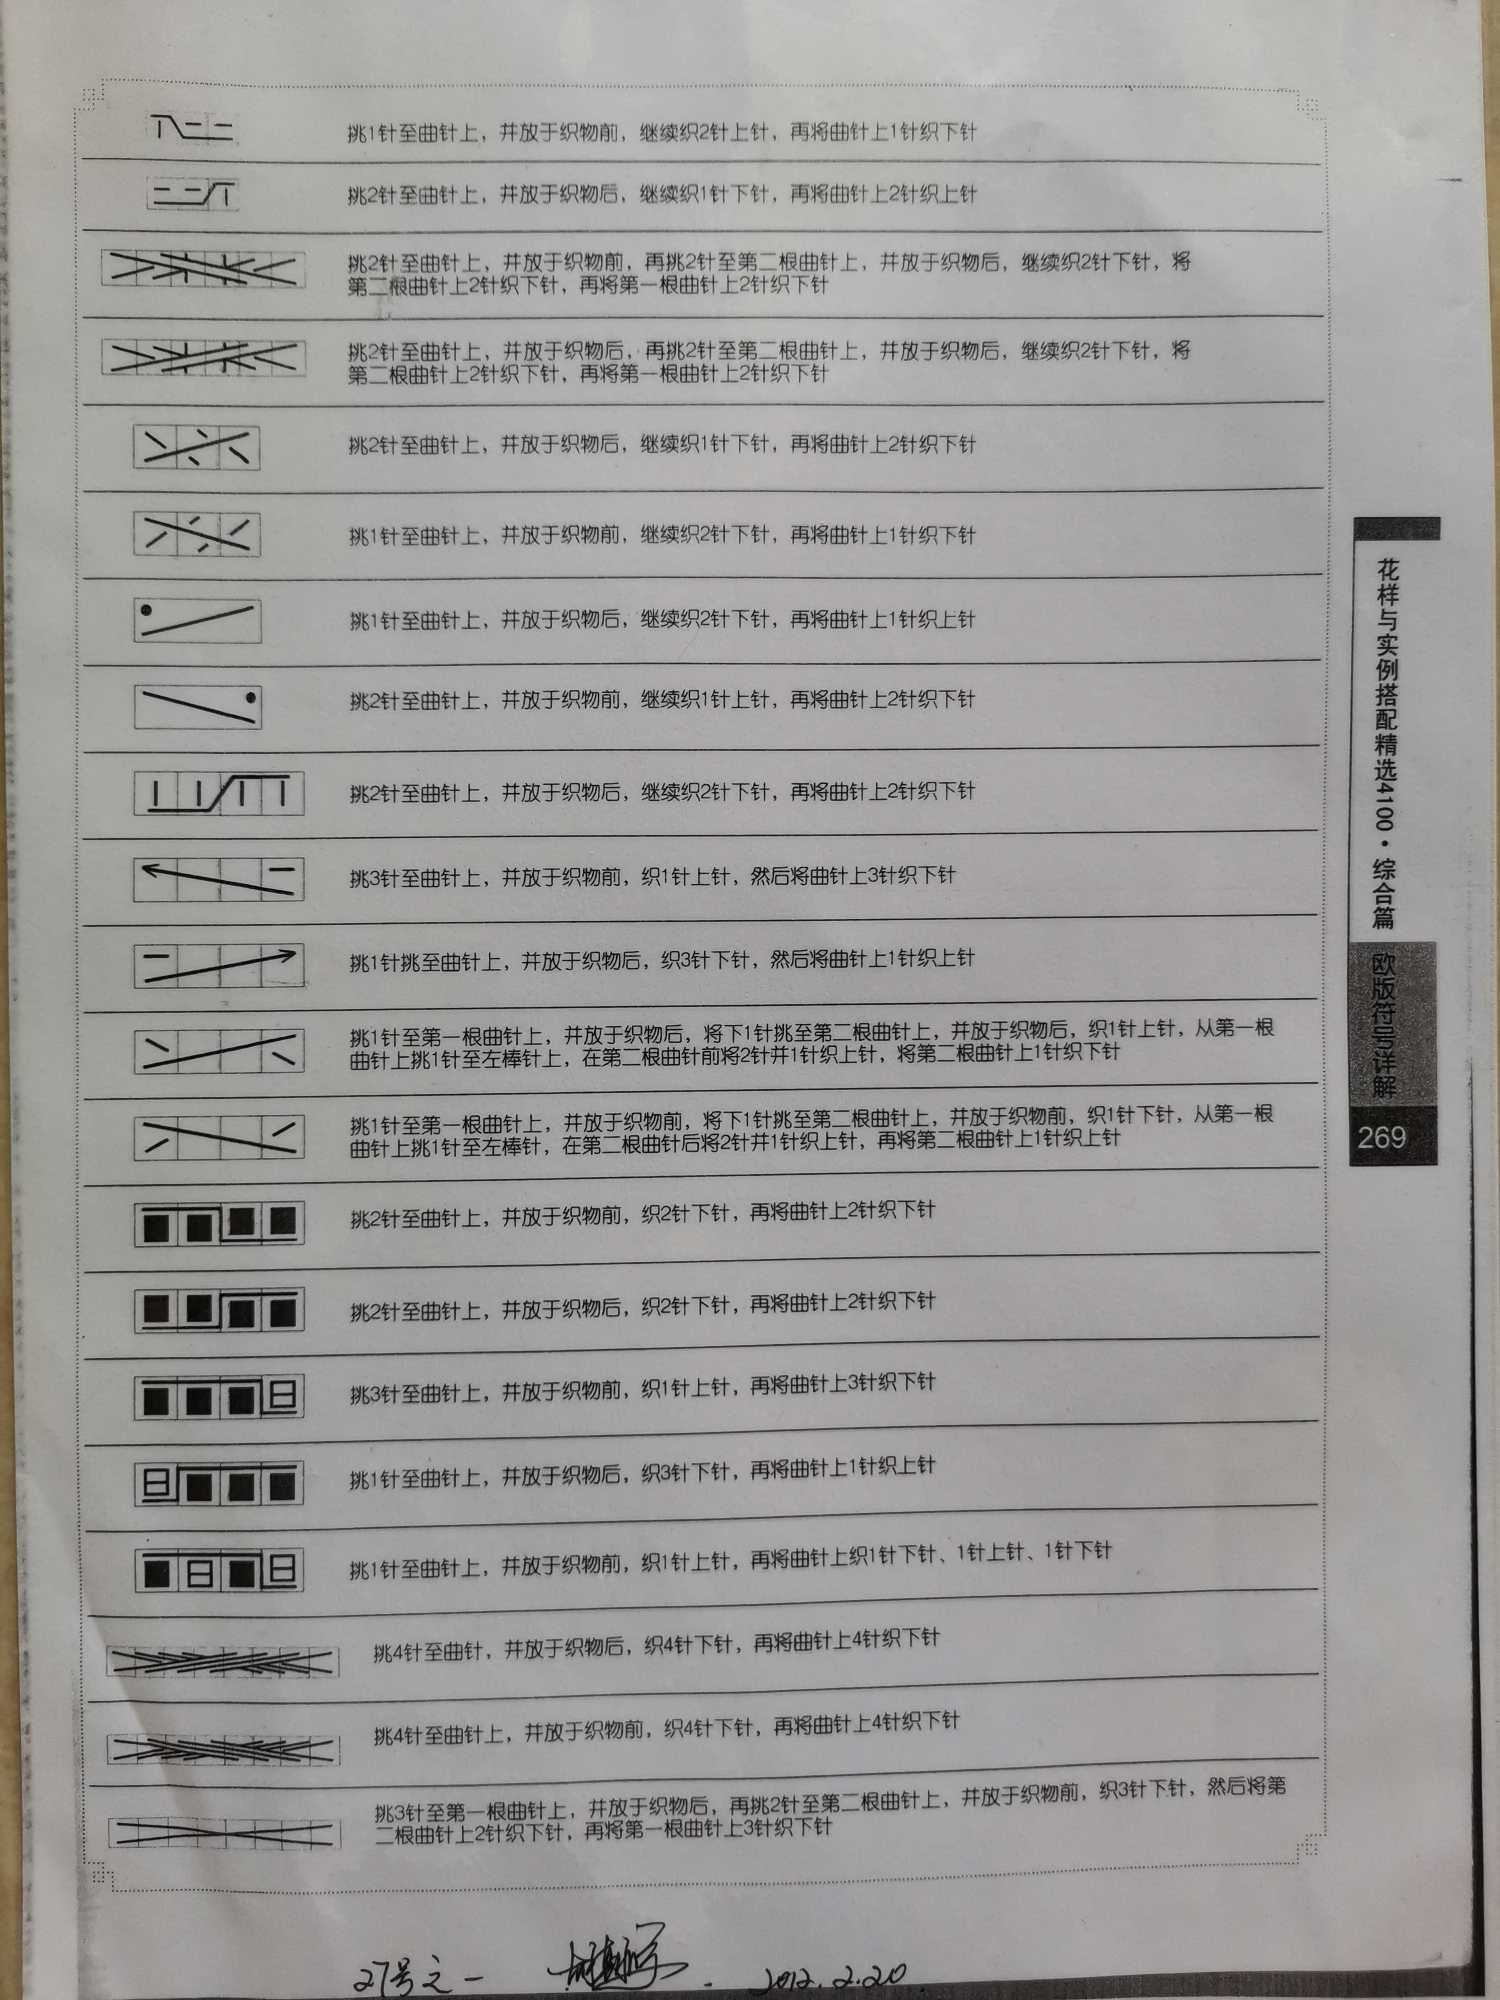 挑1针至曲针上，并放于织物前，继续织2针上针，再将曲针上1针织下针
挑2针至曲针上，并放于织物后，继续织1针下针，再将曲针上2针织上针
挑2针至曲针上，并放于织物前，再挑2针至第二根曲针上，并放于织物后，继续织2针下针，将
第二根曲针上2针织下针，再将第一根曲针上2针织下针
挑2针至曲针上，并放于织物后，再挑2针至第二根曲针上，并放于织物后，继续织2针下针，将
第二根曲针上2针织下针，再将第一根曲针上2针织下针
挑2针至曲针上，并放于织物后，继续织1针下针，再将曲针上2针织下针
挑1针至曲针上，并放于织物前，继续织2针下针，再将曲针上1针织下针
挑1针至曲针上，并放于织物后，继续织2针下针，再将曲针上1针织上针
挑2针至曲针上，并放于织物前，继续织1针上针，再将曲针上2针织下针
挑2针至曲针上，并放于织物后，继续织2针下针，再将曲针上2针织下针
挑3针至曲针上，并放于织物前，织1针上针，然后将曲针上3针织下针
挑1针挑至曲针上，并放于织物后，织3针下针，然后将曲针上1针织上针
挑1针至第一根曲针上，并放于织物后，将下1针挑至第二根曲针上，并放于织物后，织1针上针，从第一根
曲针上挑1针至左棒针上，在第二根曲针前将2针并1针织上针，将第二根曲针上1针织下针
挑1针至第一根曲针上，并放于织物前，将下1针挑至第二根曲针上，并放于织物前，织1针下针，从第一根
曲针上挑1针至左棒针，在第二根曲针后将2针并1针织上针，再将第二根曲针上1针织上针
挑2针至曲针上，并放于织物前，织2针下针，再将曲针上2针织下针
挑2针至曲针上，并放于织物后，织2针下针，再将曲针上2针织下针
挑3针至曲针上，并放于织物前，织1针上针，再将曲针上3针织下针
挑1针至曲针上，并放于织物后，织3针下针，再将曲针上1针织上针
挑1针至曲针上，并放于织物前，织1针上针，再将曲针上织1针下针、1针上针、1针下针
挑4针至曲针，并放于织物后，织4针下针，再将曲针上4针织下针
挑4针至曲针上，并放于织物前，织4针下针，再将曲针上4针织下针
挑3针至第一根曲针上，并放于织物后，再挑2针至第二根曲针上，并放于织物前，织3针下针，然后将第
二根曲针上2针织下针，再将第一根曲针上3针织下针
花样与实例搭配精选4100·综合篇
欧版符号详解
269
27号之一
2012.2.20